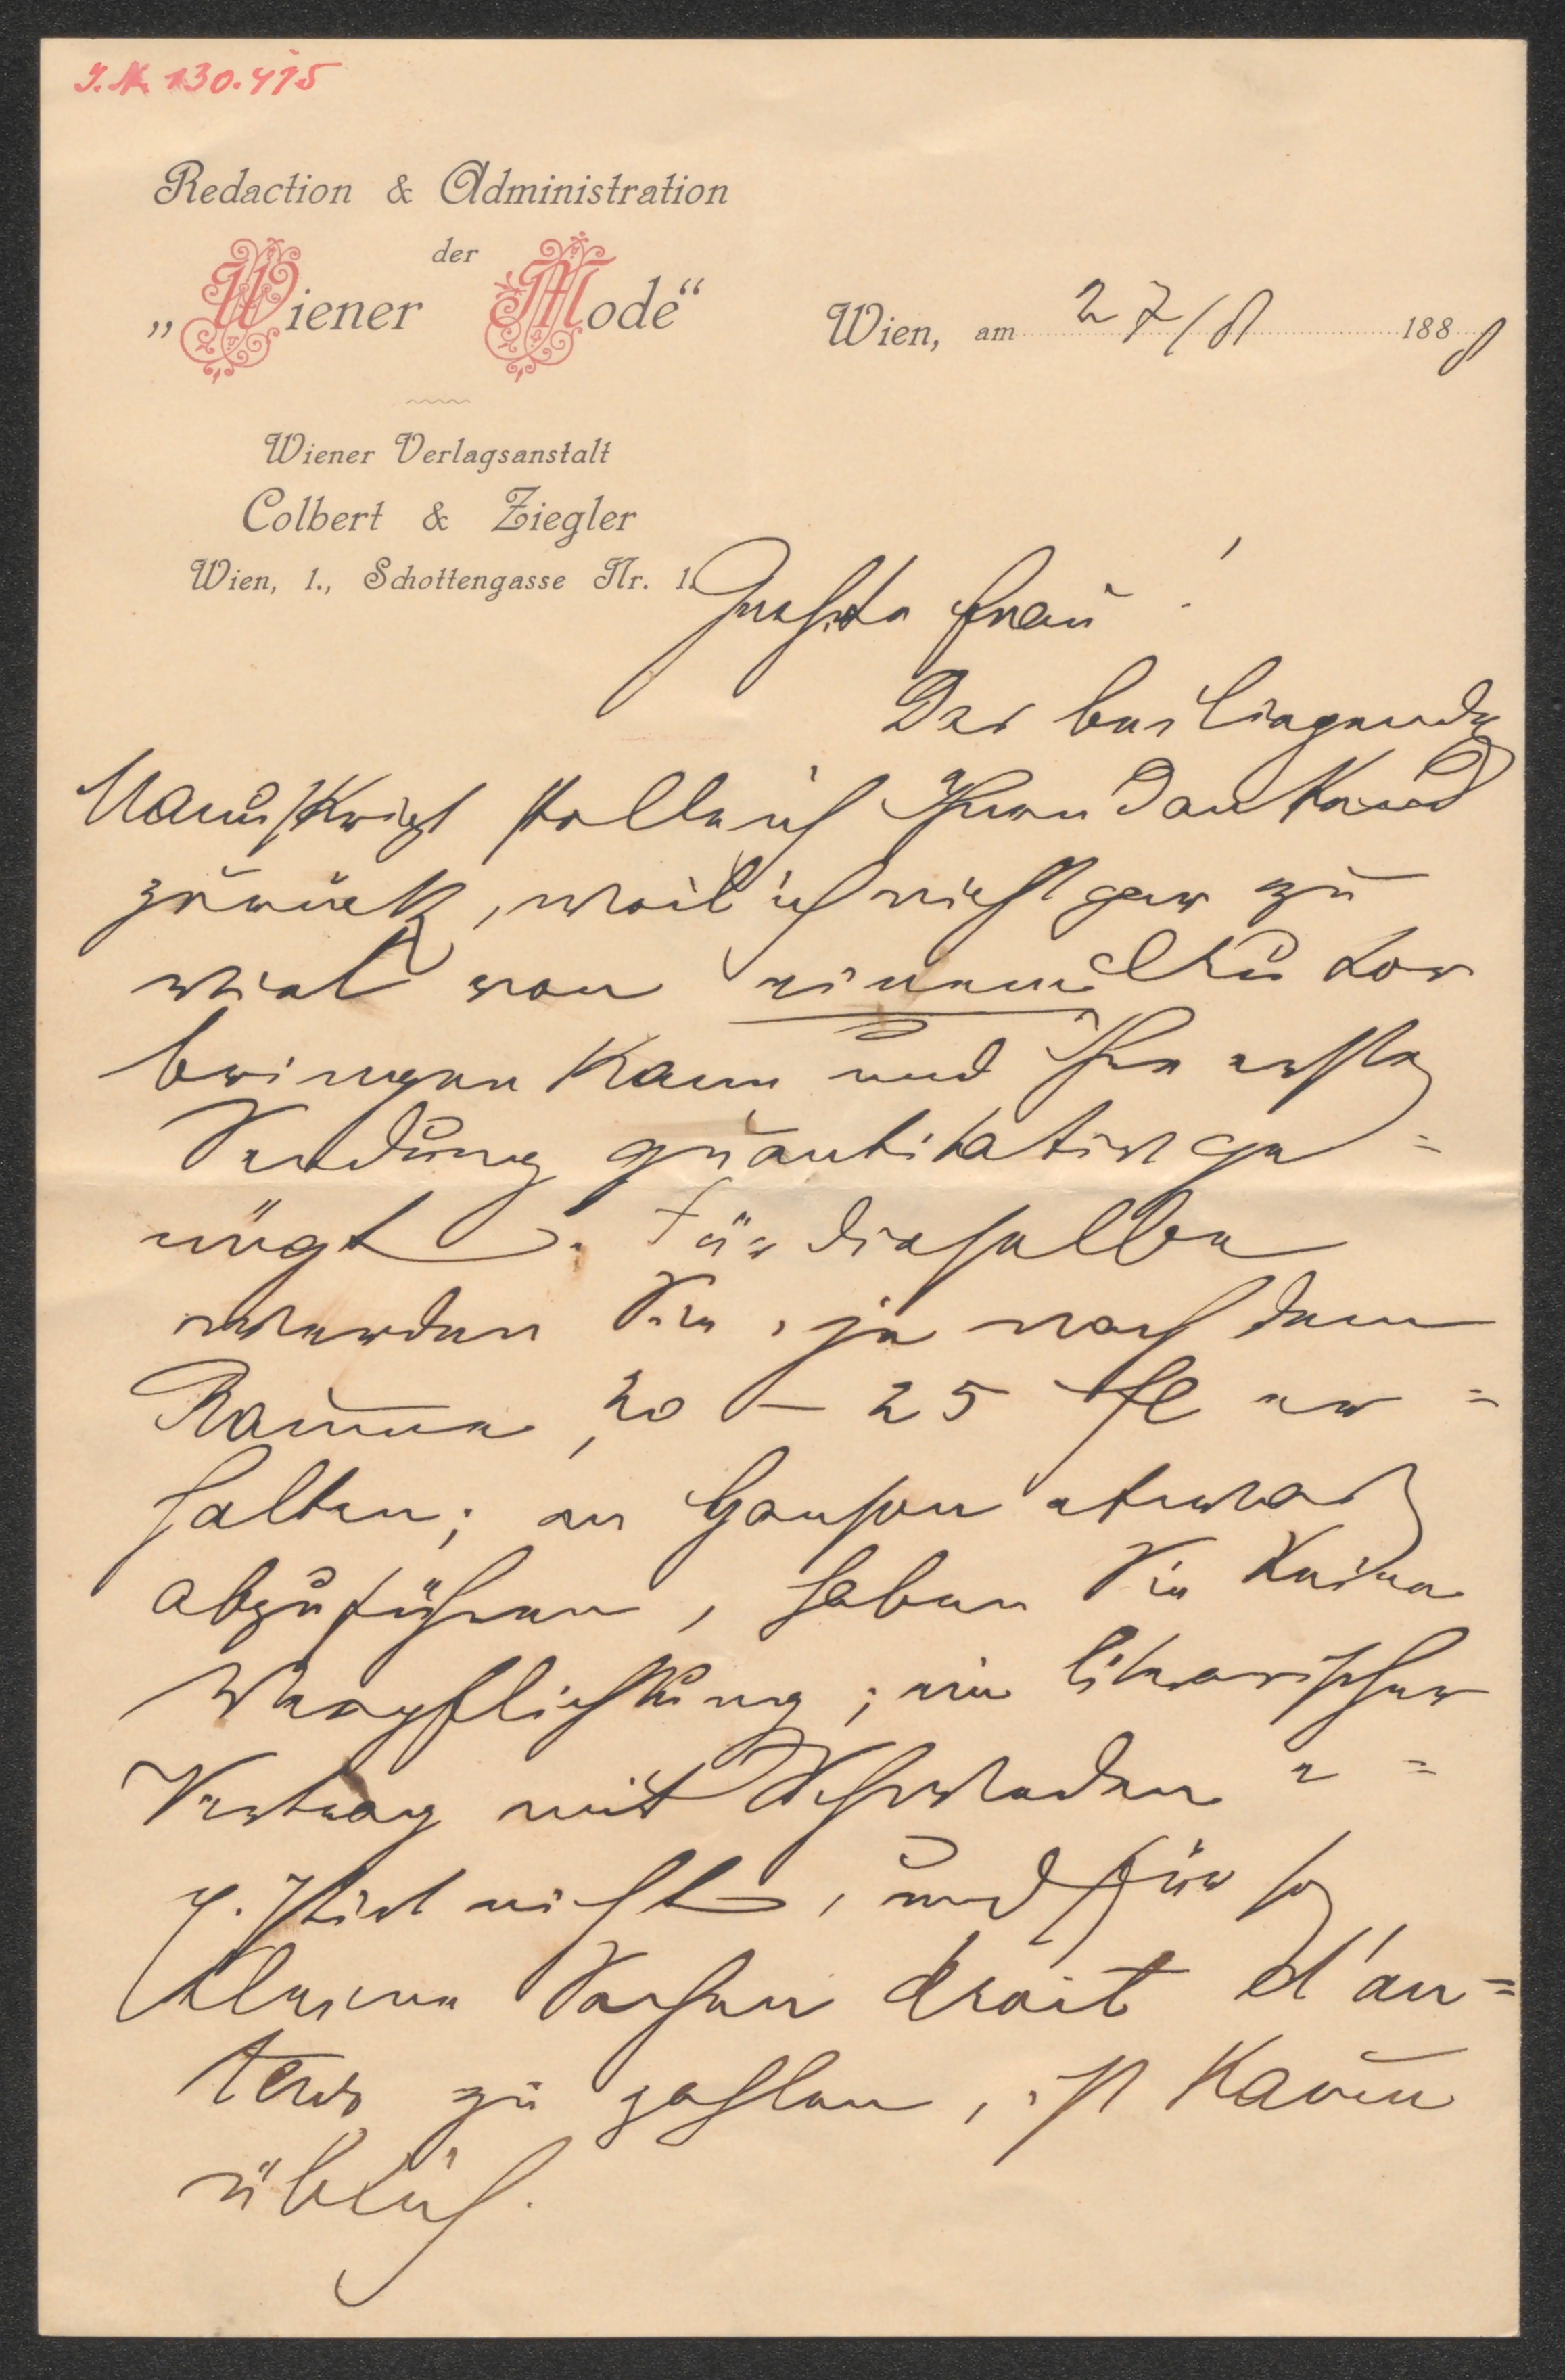 J.N. 130.415
Redaction & Administration
der
„Wiener Mode“
Wien, am 27/8 1888
Wiener Verlagsanstalt
Colbert & Ziegler
Wien, 1., Schottengasse Nr. 1.
Geehrte Frau!
Das beiliegende
Manuskript stelle ich Ihnen dankend
zurück, weil ich nicht gar zu
viel von einem Autor
bringen kann und Ihre erste
Sendung quantitativ ge=
nügt. Für dieselbe
werden Sie, je nach dem
Raume, 20 – 25 fl er=
halten; an Hansson etwas
abzuführen, haben Sie keine
Verpflichtung; ein literarischer
Vertrag mit Schweden e=
xistirt nicht, und für so
kleine Sachen droit d'au=
teur zu zahlen, ist kaum
üblich.